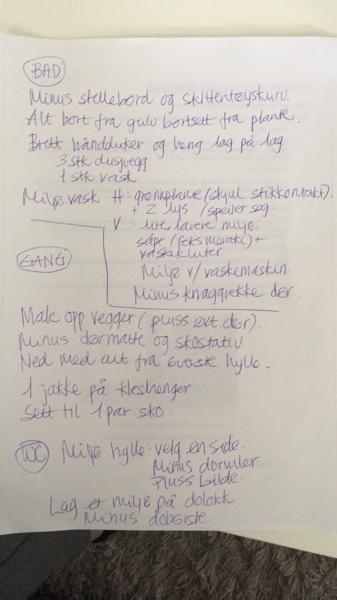 BAD
Minus stellebord og skittentøyskurv.
Alt bort fra gulv bortsett fra plante.
Brett håndduker og heng lag på lag
3 stk dusjvegg
1 stk vask
Miljø vask: H: grønnplante (skjul stikkontakt).
+ 2 lys / speiler seg
V lite lavere miljø.
såpe / (feks moraki) +
vaskekluter
Miljø v/ vaskemaskin.
Minus knaggrekke dør.
GANG
Male opp vegger (pluss evt. dør).
Minus dørmatte og skostativ
Ned med alt fra øverste hylle.
1 jakke på kleshenger
Sett til 1 par sko.
WC
Miljø hylle: velg en side.
Minus doruller
Pluss bilde.
Lag et miljø på dolokk
Minus dobørste